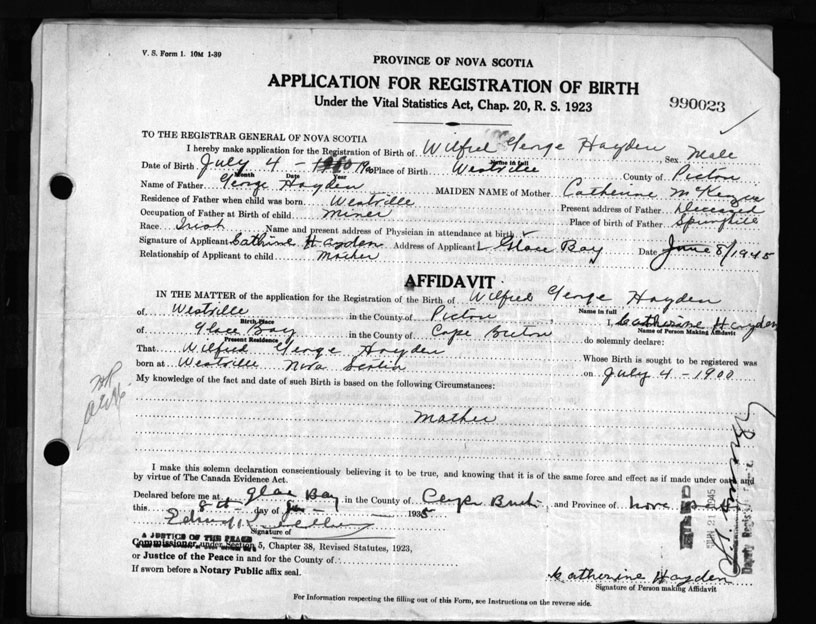 V. S. Form 1. 10M 1-39
PROVINCE OF NOVA SCOTIA
APPLICATION FOR REGISTRATION OF BIRTH
Under the Vital Statistics Act, Chap. 20, R. S. 1923
990023
TO THE REGISTRAR GENERAL OF NOVA SCOTIA
I hereby make application for the Registration of Birth of Wilfred George Hayden, Sex Male
Name in full
Date of Birth July 4 - 1900 Place of Birth Westville County of Pictou
Month Date Year
Name of Father George Hayden MAIDEN NAME of Mother Catherine McKenzie
Residence of Father when child was born Westville Present address of Father Deceased
Occupation of Father at Birth of child Miner Place of birth of Father Springhill
Race Irish Name and present address of Physician in attendance at birth
Signature of Applicant Catherine Hayden Address of Applicant Glace Bay Date June 8/1945
Relationship of Applicant to child Mother
AFFIDAVIT
IN THE MATTER of the application for the Registration of the Birth of Wilfred George Hayden
Name in full
of Westville in the County of Pictou, I, Catherine Hayden
Birth Place Name of Person Making Affidavit
of Glace Bay in the County of Cape Breton do solemnly declare:
Present Residence
That Wilfred George Hayden Whose Birth is sought to be registered was
born at Westville Nova Scotia on July 4 - 1900
My knowledge of the fact and date of such Birth is based on the following Circumstances:
Mother
I make this solemn declaration conscientiously believing it to be true, and knowing that it is of the same force and effect as if made under oath and
by virtue of The Canada Evidence Act.
Declared before me at Glace Bay in the County of and Province of
this 8th day of 1935
Signature of
A JUSTICE OF THE PEACE
Commissioner under Section 5, Chapter 38, Revised Statutes, 1923,
or Justice of the Peace in and for the County of
If sworn before a Notary Public affix seal.
Catherine Hayden
Signature of Person making Affidavit
For Information respecting the filling out of this Form, see Instructions on the reverse side.